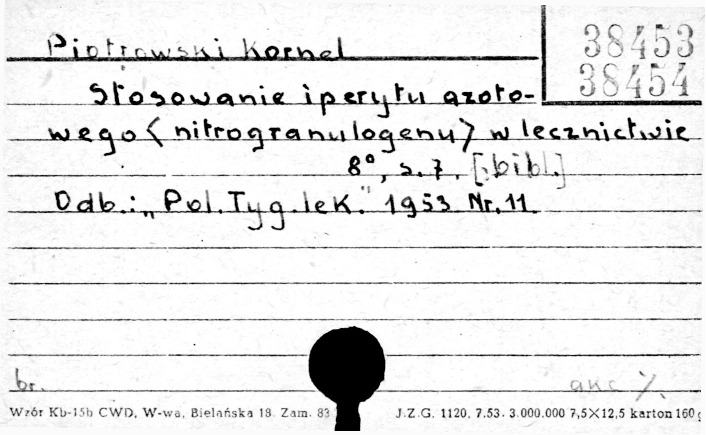 Piotrowski Kornel
38453
38454
Stosowanie iperytu azoto-
wego (nitrogranulogenu) w lecznictwie
8°, s. 7. [:bibl.]
Odb.: „Pol. Tyg. lek." 1953 Nr. 11.
br.
akc %
Wzór Kb-15b CWD, W-wa, Bielańska 18. Zam. 83
J.Z.G. 1120, 7.53. 3.000.000 7,5×12,5 karton 160 g